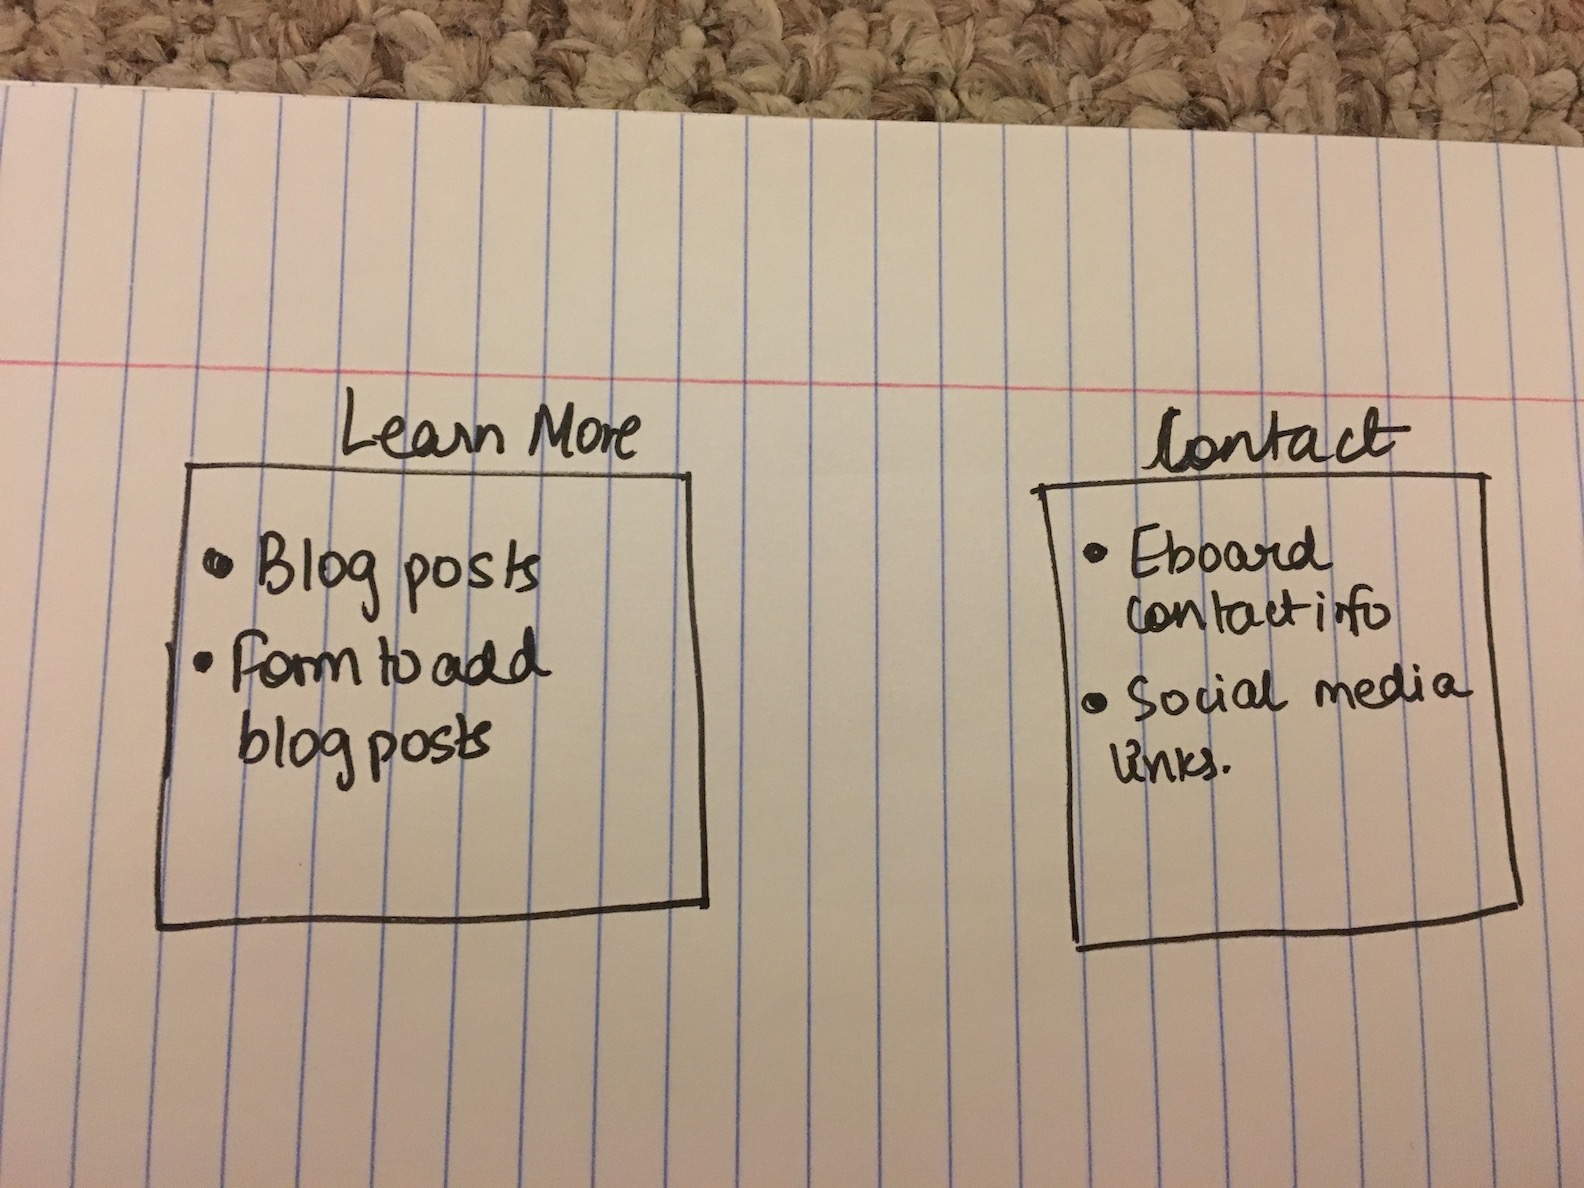 Learn More
• Blog posts
• Form to add
blog posts
Contact
• Eboard
contact info
• Social media
links.